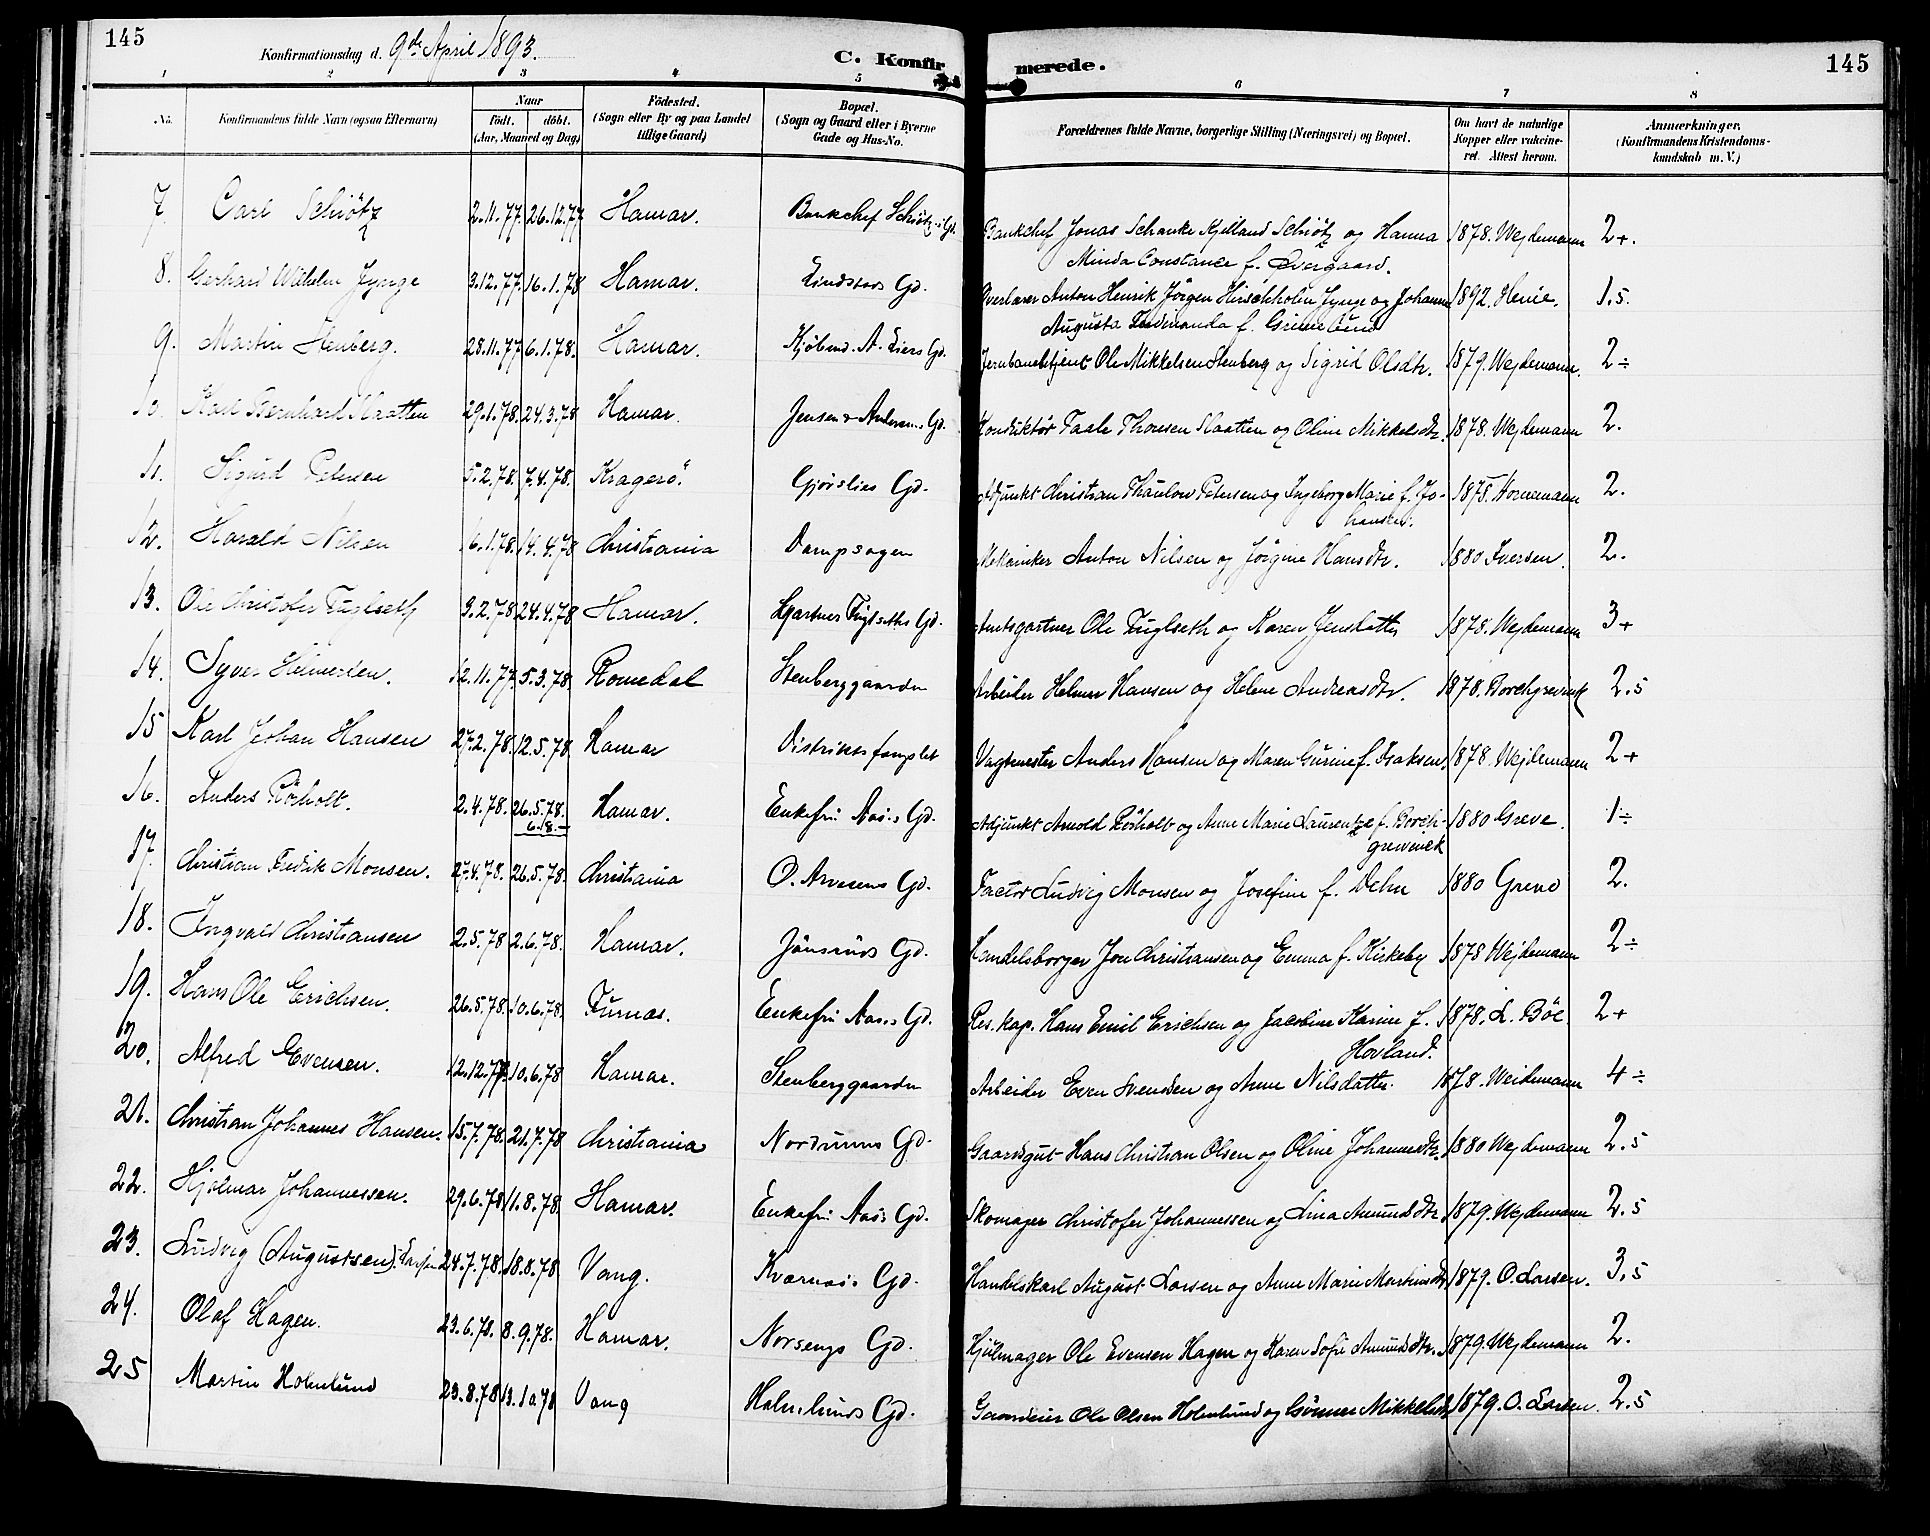 145
Konfirmationsdag d. 9de April 1893.
C. Konfirmerede.
145
1 2 3 4 5 6 7 8
No. Konfirmandens fulde Navn (ogsaa Efternavn) Naar født. døbt. (Aar, Maaned og Dag) Fødested. (Sogn eller By og paa Landet tillige Gaard) Bopæl. (Sogn og Gaard eller i Byerne Gade og Hus-No. Forældrenes fulde Navne, borgerlige Stilling (Næringsvei) og Bopæl. Om havt de naturlige Kopper eller vakcineret. Attest herom. Anmærkninger. (Konfirmandens Kristendomskundskab m. V.)
7. Carl Schiötz 2.11.77. 26.12.77 Hamar. Bankchef Schiötz's Gd. Bankchef Jonas Schanke Kjelland Schiötz og Hanna 1878. Wejdemann 2+.
Minda Constance f. Overgaard.
8. Gerhard Wilhelm Jynge 3.12.77. 16.1.78 Hamar. Lindstads Gd. Overlærer Anton Henrik Jörgen Hirschholm Jynge og Johanne 1892. Henie. 1,5.
Augusta Ferdinanda f. Grimelund
9. Martin Stenberg. 28.11.77 6.1.78. Hamar. Kjöbmd. A. Liers Gd. Jernbanebetjent Ole Mikkelsen Stenberg og Sigrid Olsdtr. 1879. Wejdemann. 2÷
10. Karl Bernhard Slaatten 29.1.78. 24.3.78 Hamar. Jensen & Andersens Gd. Konduktör Taale Thomsen Slaatten og Oline Mikkelsdtr. 1878. Wejdemann 2.
11. Sigurd Petersen 5.2.78. 7.4.78. Kragerö. Gjörslies Gd. Adjunkt Christian Thaulow Petersen og Ingeborg Marie f. Jo- 1878. Hornemann 2.
hansen.
12. Harald Nilsen 16.1.78. 14.4.78 Christiania Dampsagen Mekaniker Anton Nilsen og Jörgine Hansdtr. 1880 Iversen. 2.
13. Ole Christofer Fuglseth 9.2.78 24.4.78 Hamar. Gartner Fuglseths Gd. Amtsgartner Ole Fuglseth og Karen Jensdatter 1878. Wejdemann 3+
14. Syver Helmersen. 12.11.77. 5.3.78. Romedal Stenberggaarden Arbeider Helmer Hansen og Helene Andreasdtr. 1878. Borchgrevink 2,5
15 Karl Johan Hansen 27.2.78. 12.5.78. Hamar Distriktsfængslet Vagtmester Anders Hansen og Maren Gurine f. Isaksen. 1878. Wejdemann 2+
16. Anders Röholt. 2.4.78. 26.5.78. Hamar. Enkefru Aas's Gd. Adjunkt Arnold Röholt og Anne Marie Laurentze f. Borch- 1880 Greve. 1÷
grevinck
17. Christian Fredrik Monsen. 27.4.78. 26.5.78. Christiania O. Arvesens Gd. Factor Ludvig Monsen og Josefine f. Dehn 1880 Greve 2.
18. Ingvald Christiansen 2.5.78 2.6.78. Hamar. Jönsruds Gd. Handelsborger Jon Christiansen og Emma f. Kirkeby 1878 Wejdemann 2÷
19. Hans Ole Erichsen. 26.5.78. 10.6.78. Furnæs. Enkefru Aas's Gd. Res. kap. Hans Emil Erichsen og Jacobine Karine f. 1878. L. Böe. 2+
Hovland.
20. Alfred Evensen. 12.12.77. 10.6.78 Hamar. Stenberggaarden Arbeider Even Svendsen og Anne Nilsdatter. 1878. Weidemann 4÷
21. Christian Johannes Hansen. 15.7.78. 21.7.78 Christiania Nordrums Gd. Gaardsgut Hans Christian Olsen og Oline Johannesdtr. 1880 Wejdemann 2,5
22. Hjalmar Johannessen. 29.6.78. 11.8.78. Hamar. Enkefru Aas's Gd. Skomager Christofer Johannessen og Lina Amundsdtr. 1879. Wejdemann 2,5
23. Ludvig (Augustsen) Larsen 24.7.78. 18.8.78 Vang. Kværnas's Gd. Handelskarl August Larsen og Anne Marie Martinsdtr. 1879. O. Larsen. 3,5
24. Olaf Hagen. 23.6.78. 8.9.78. Hamar. Norsengs Gd. Hjulmager Ole Evensen Hagen og Karen Sofie Amundsdtr. 1879. Wejdemann 2.
25 Martin Holmlund 23.8.78 13.10.78 Vang Holmlunds Gd. Gaardeier Ole Olsen Holmlund og Gunner Mikkelsdtr. 1879. O. Larsen. 2,5